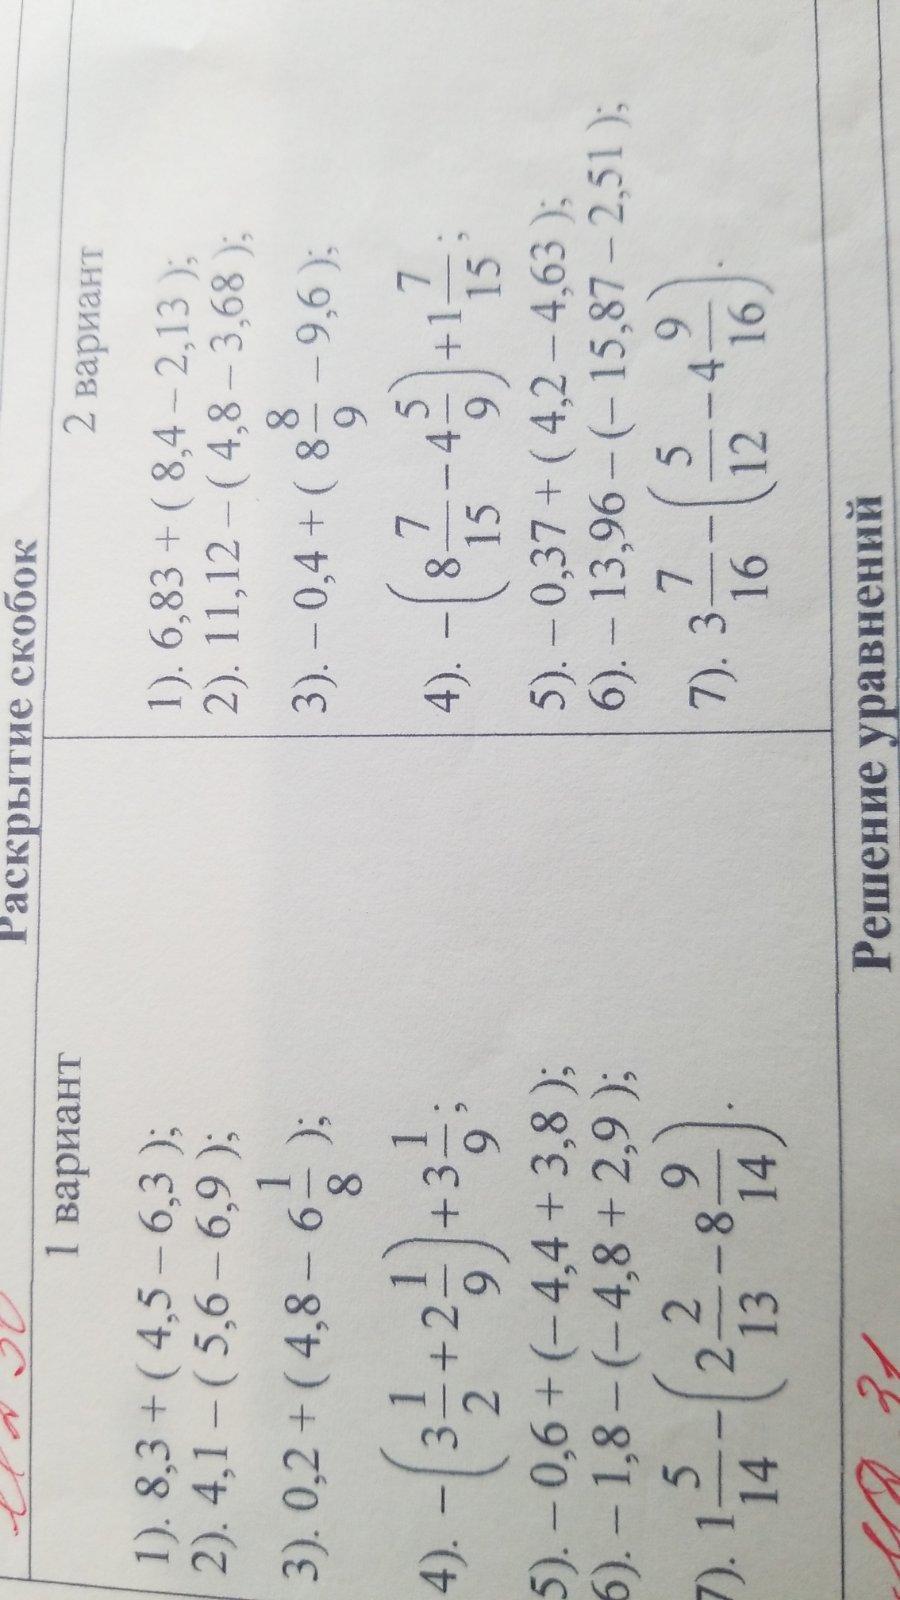 Раскрытие скобок
1 вариант
1). 8,3 + ( 4,5 – 6,3 );
2). 4,1 – ( 5,6 – 6,9 );
3). 0,2 + ( 4,8 – 6 1/8 );
4). –(3 1/2 + 2 1/9) + 3 1/9;
5). – 0,6 + (– 4,4 + 3,8 );
6). – 1,8 – (– 4,8 + 2,9 );
7). 1 5/14 – (2 2/13 – 8 9/14).
2 вариант
1). 6,83 + ( 8,4 – 2,13 );
2). 11,12 – ( 4,8 – 3,68 );
3). – 0,4 + ( 8 8/9 – 9,6 );
4). –(8 7/15 – 4 5/9) + 1 7/15;
5). – 0,37 + ( 4,2 – 4,63 );
6). – 13,96 – (– 15,87 – 2,51 );
7). 3 7/16 – (5/12 – 4 9/16).
Решение уравнений